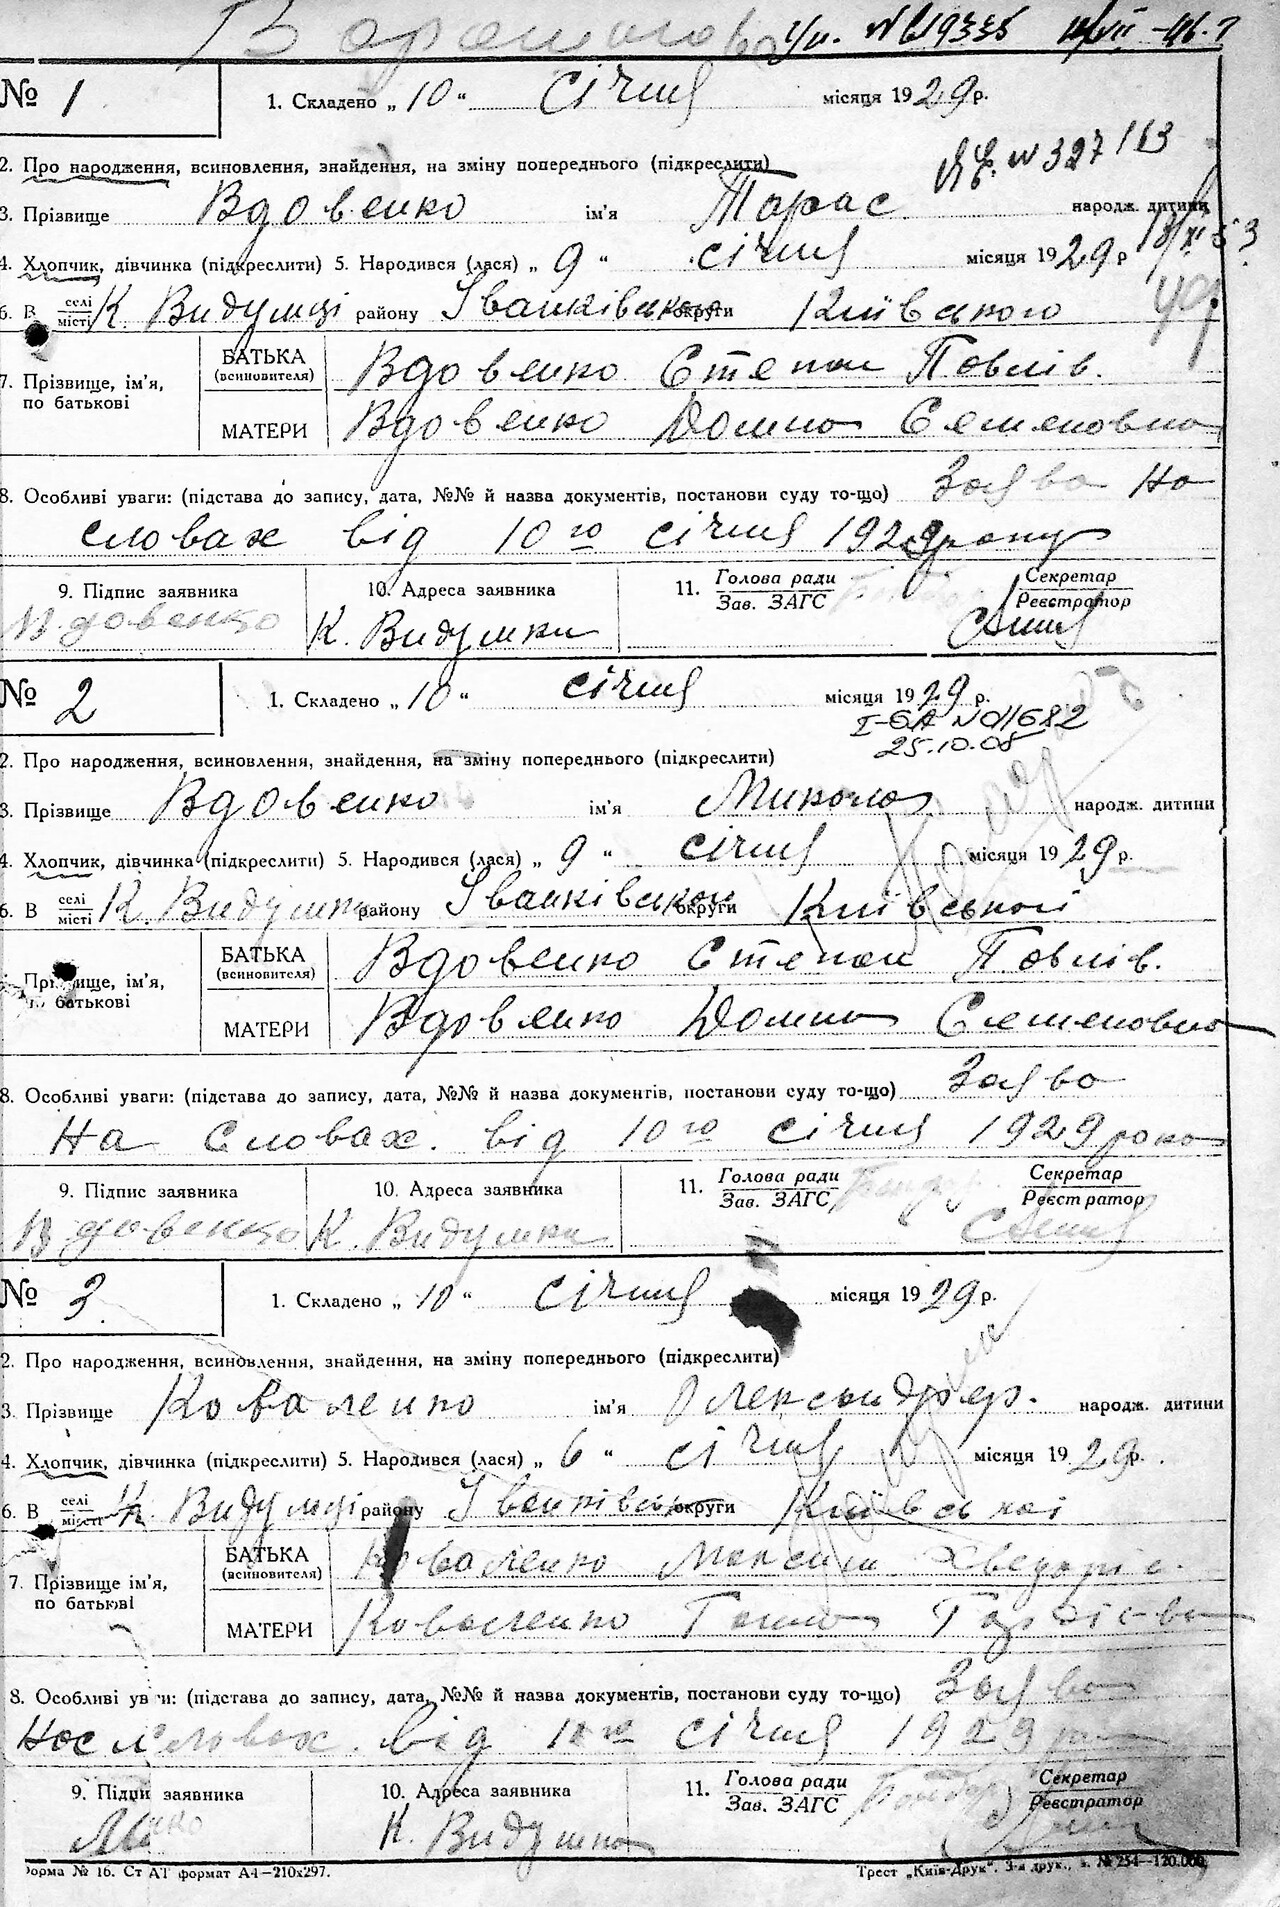 № 1 1. Складено „ 10 “ січня місяця 1929 р.
2. Про народження, всиновлення, знайдення, на зміну попереднього (підкреслити)
№ 327
3. Прізвище Вдовенко ім'я Тарас народж. дитини
4. Хлопчик, дівчинка (підкреслити) 5. Народився (лася) „ 9 “ січня місяця 1929 р
6. В селі місті К. Видумці району Іванківського округи Київського
7. Прізвище, ім'я, по батькові
БАТЬКА (всиновителя) Вдовенко Степан Павлів.
МАТЕРИ Вдовенко Домна Семеновна
8. Особливі уваги: (підстава до запису, дата, №№ й назва документів, постанови суду то-що) Заява на
словах від 10го січня 1929 року
9. Підпис заявника 10. Адреса заявника 11. Голова ради Зав. ЗАГС Секретар Реєстратор
Вдовенко К. Видумка
№ 2 1. Складено „ 10 “ січня місяця 1929 р.
І-БА №011682
25.10.08
2. Про народження, всиновлення, знайдення, на зміну попереднього (підкреслити)
3. Прізвище Вдовенко ім'я Микола народж. дитини
4. Хлопчик, дівчинка (підкреслити) 5. Народився (лася) „ 9 “ січня місяця 1929 р.
6. В селі місті К. Видумка району Іванківської округи Київської
Прізвище, ім'я, по батькові
БАТЬКА (всиновителя) Вдовенко Степан Павлів.
МАТЕРИ Вдовенко Домна Семеновна
8. Особливі уваги: (підстава до запису, дата, №№ й назва документів, постанови суду то-що) Заява
на словах. від 10го січня 1929 рока
9. Підпис заявника 10. Адреса заявника 11. Голова ради Зав. ЗАГС Секретар Реєстратор
Вдовенко К. Видумка
№ 3 1. Складено „ 10 “ січня місяця 1929 р.
2. Про народження, всиновлення, знайдення, на зміну попереднього (підкреслити)
3. Прізвище Коваленко ім'я Олександер. народж. дитини
4. Хлопчик, дівчинка (підкреслити) 5. Народився (лася) „ 6 “ січня місяця 1929 р.
6. В селі місті К. Видумці району Іванківської округи Київської
7. Прізвище ім'я, по батькові
БАТЬКА (всиновителя) Коваленко Максим
МАТЕРИ Коваленко Ганна
8. Особливі уваги: (підстава до запису, дата, №№ й назва документів, постанови суду то-що) Заява
на словах. від січня 1929
9. Підпис заявника 10. Адреса заявника 11. Голова ради Зав. ЗАГС Секретар Реєстратор
К. Видумка
Форма № 16. Ст А1 формат А4—210х297. Трест „Київ-Друк“. 3-я друк., з. № 254—120.000